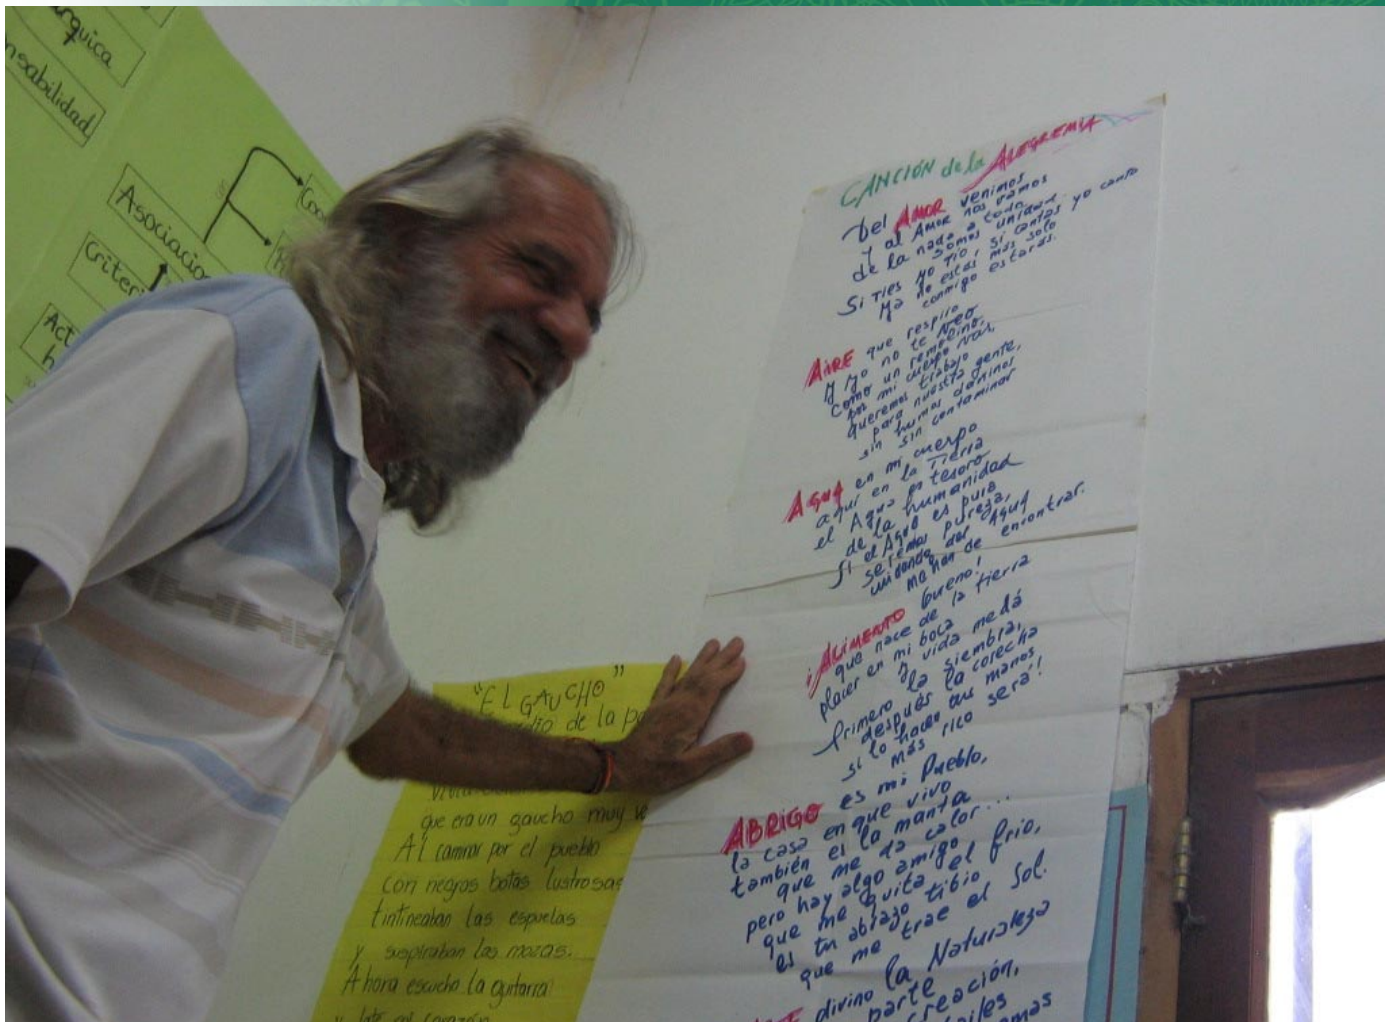 rquica
nsabilidad
Asociacio
Criteri
Act
h
CANCIÓN de la ALEGREMIA
Del AMOR venimos
y al AMOR nos vamos
de la nada a todo
somos unidad.
Si ries yo rio, si cantas yo canto
ya no estás más solo
conmigo estarás.
AIRE que respiro
y yo no te veo
como un remolino,
por mi cuerpo vas,
queremos trabajo
para nuestra gente,
sin humos dañinos
sin contaminar
AGUA en mi cuerpo
aquí en la Tierra
el Agua es tesoro
de la humanidad
Si el Agua es pura
seremos pureza,
cuidando del Agua
me han de encontrar.
¡ALIMENTO bueno!
que nace de la tierra
placer en mi boca
y vida me dá
Primero la siembra,
después la cosecha
si lo hacen tus manos
más rico será!
ABRIGO es mi Pueblo,
la casa en que vivo
también es la manta
que me da calor...
pero hay algo amigo
que me quita el frio,
es tu abrazo tibio
que me trae el Sol.
divino la Naturaleza
parte
creación,
"EL GAUCHO"
dio de la pa
que era un gaucho muy
Al camnar por el pueblo
con negras botas lustrosas
tintineaban las espuelas
y suspiraban las mozas.
Ahora escucho la guitarra